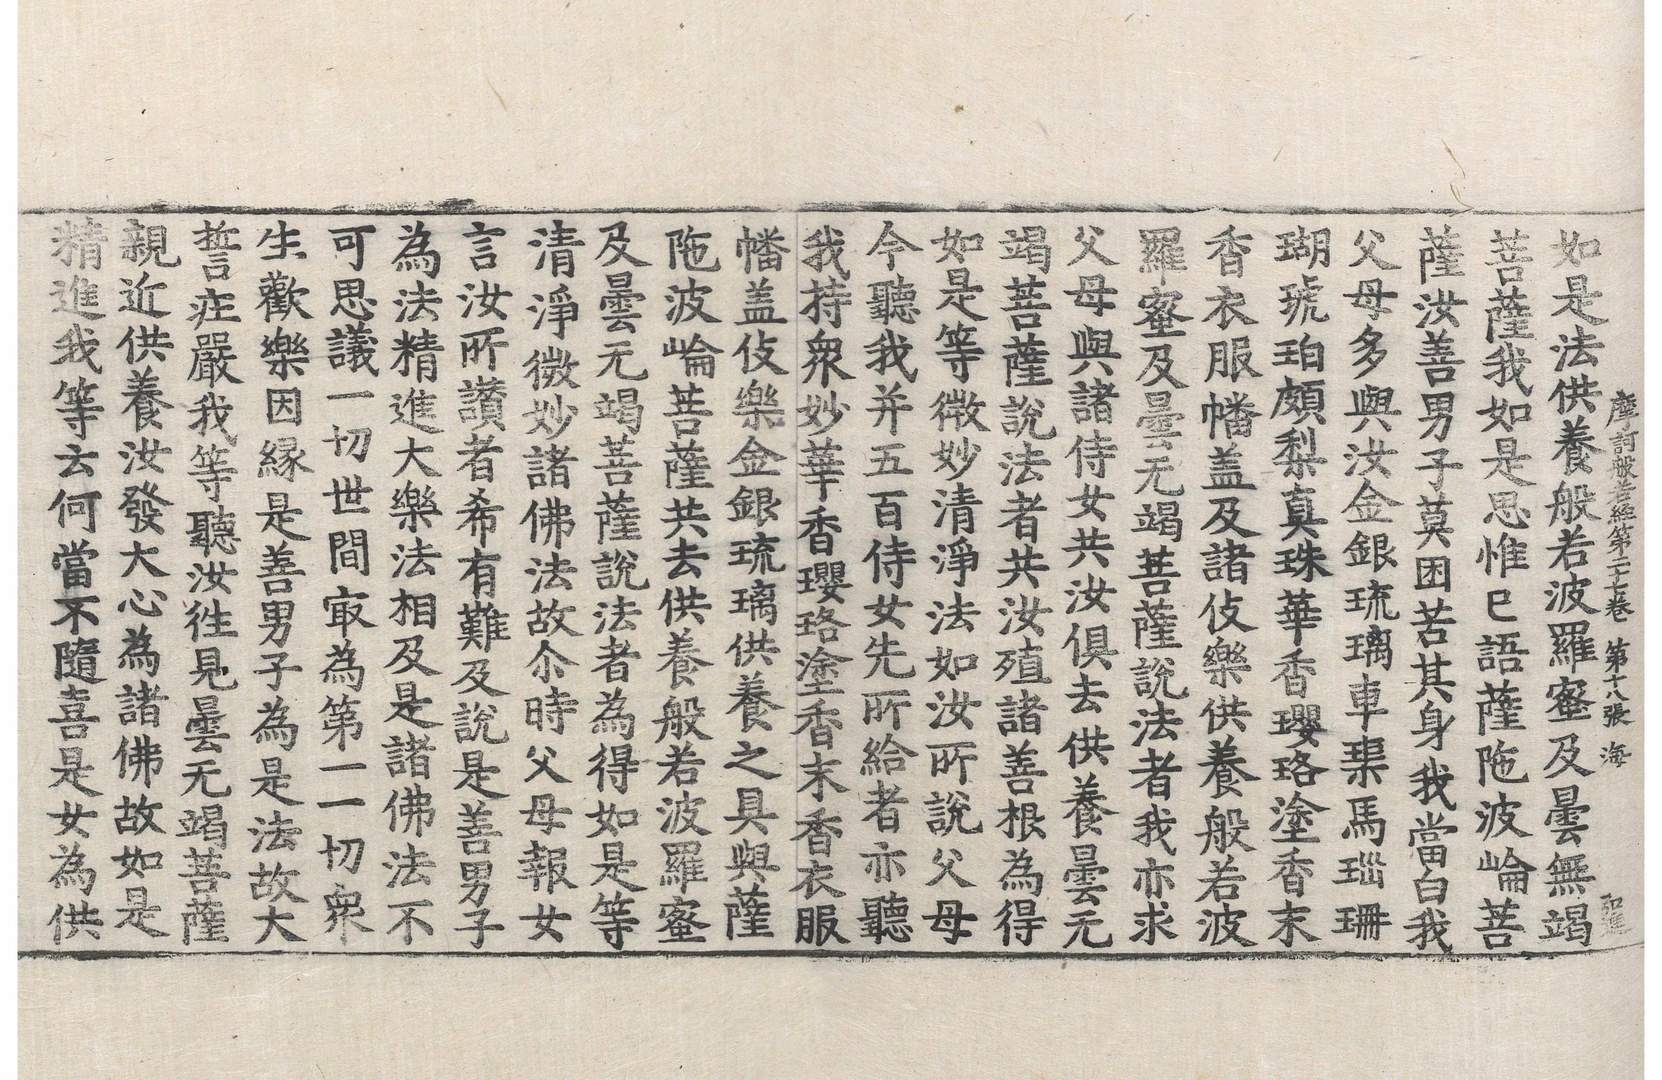 摩訶般若經第二十七卷 第十八張 海
如是法供養般若波羅蜜及曇無竭
菩薩我如是思惟已語薩陁波崘菩
薩汝善男子莫困苦其身我當白我
父母多與汝金銀琉璃車𤦲馬瑙珊
瑚琥珀頗梨真珠華香瓔珞塗香末
香衣服幡盖及諸伎樂供養般若波
羅蜜及曇无竭菩薩說法者我亦求
父母與諸侍女共汝俱去供養曇无
竭菩薩說法者共汝殖諸善根為得
如是等微妙清淨法如汝所說父母
今聽我并五百侍女先所給者亦聽
我持衆妙華香瓔珞塗香末香衣服
幡盖伎樂金銀琉璃供養之具與薩
陁波崘菩薩共去供養般若波羅蜜
及曇无竭菩薩說法者為得如是等
清淨微妙諸佛法故尒時父母報女
言汝所讃者希有難及說是善男子
為法精進大樂法相及是諸佛法不
可思議一切世間㝡為第一一切衆
生歡樂因緣是善男子為是法故大
誓庄嚴我等聽汝徃見曇无竭菩薩
親近供養汝發大心為諸佛故如是
精進我等云何當不隨喜是女為供